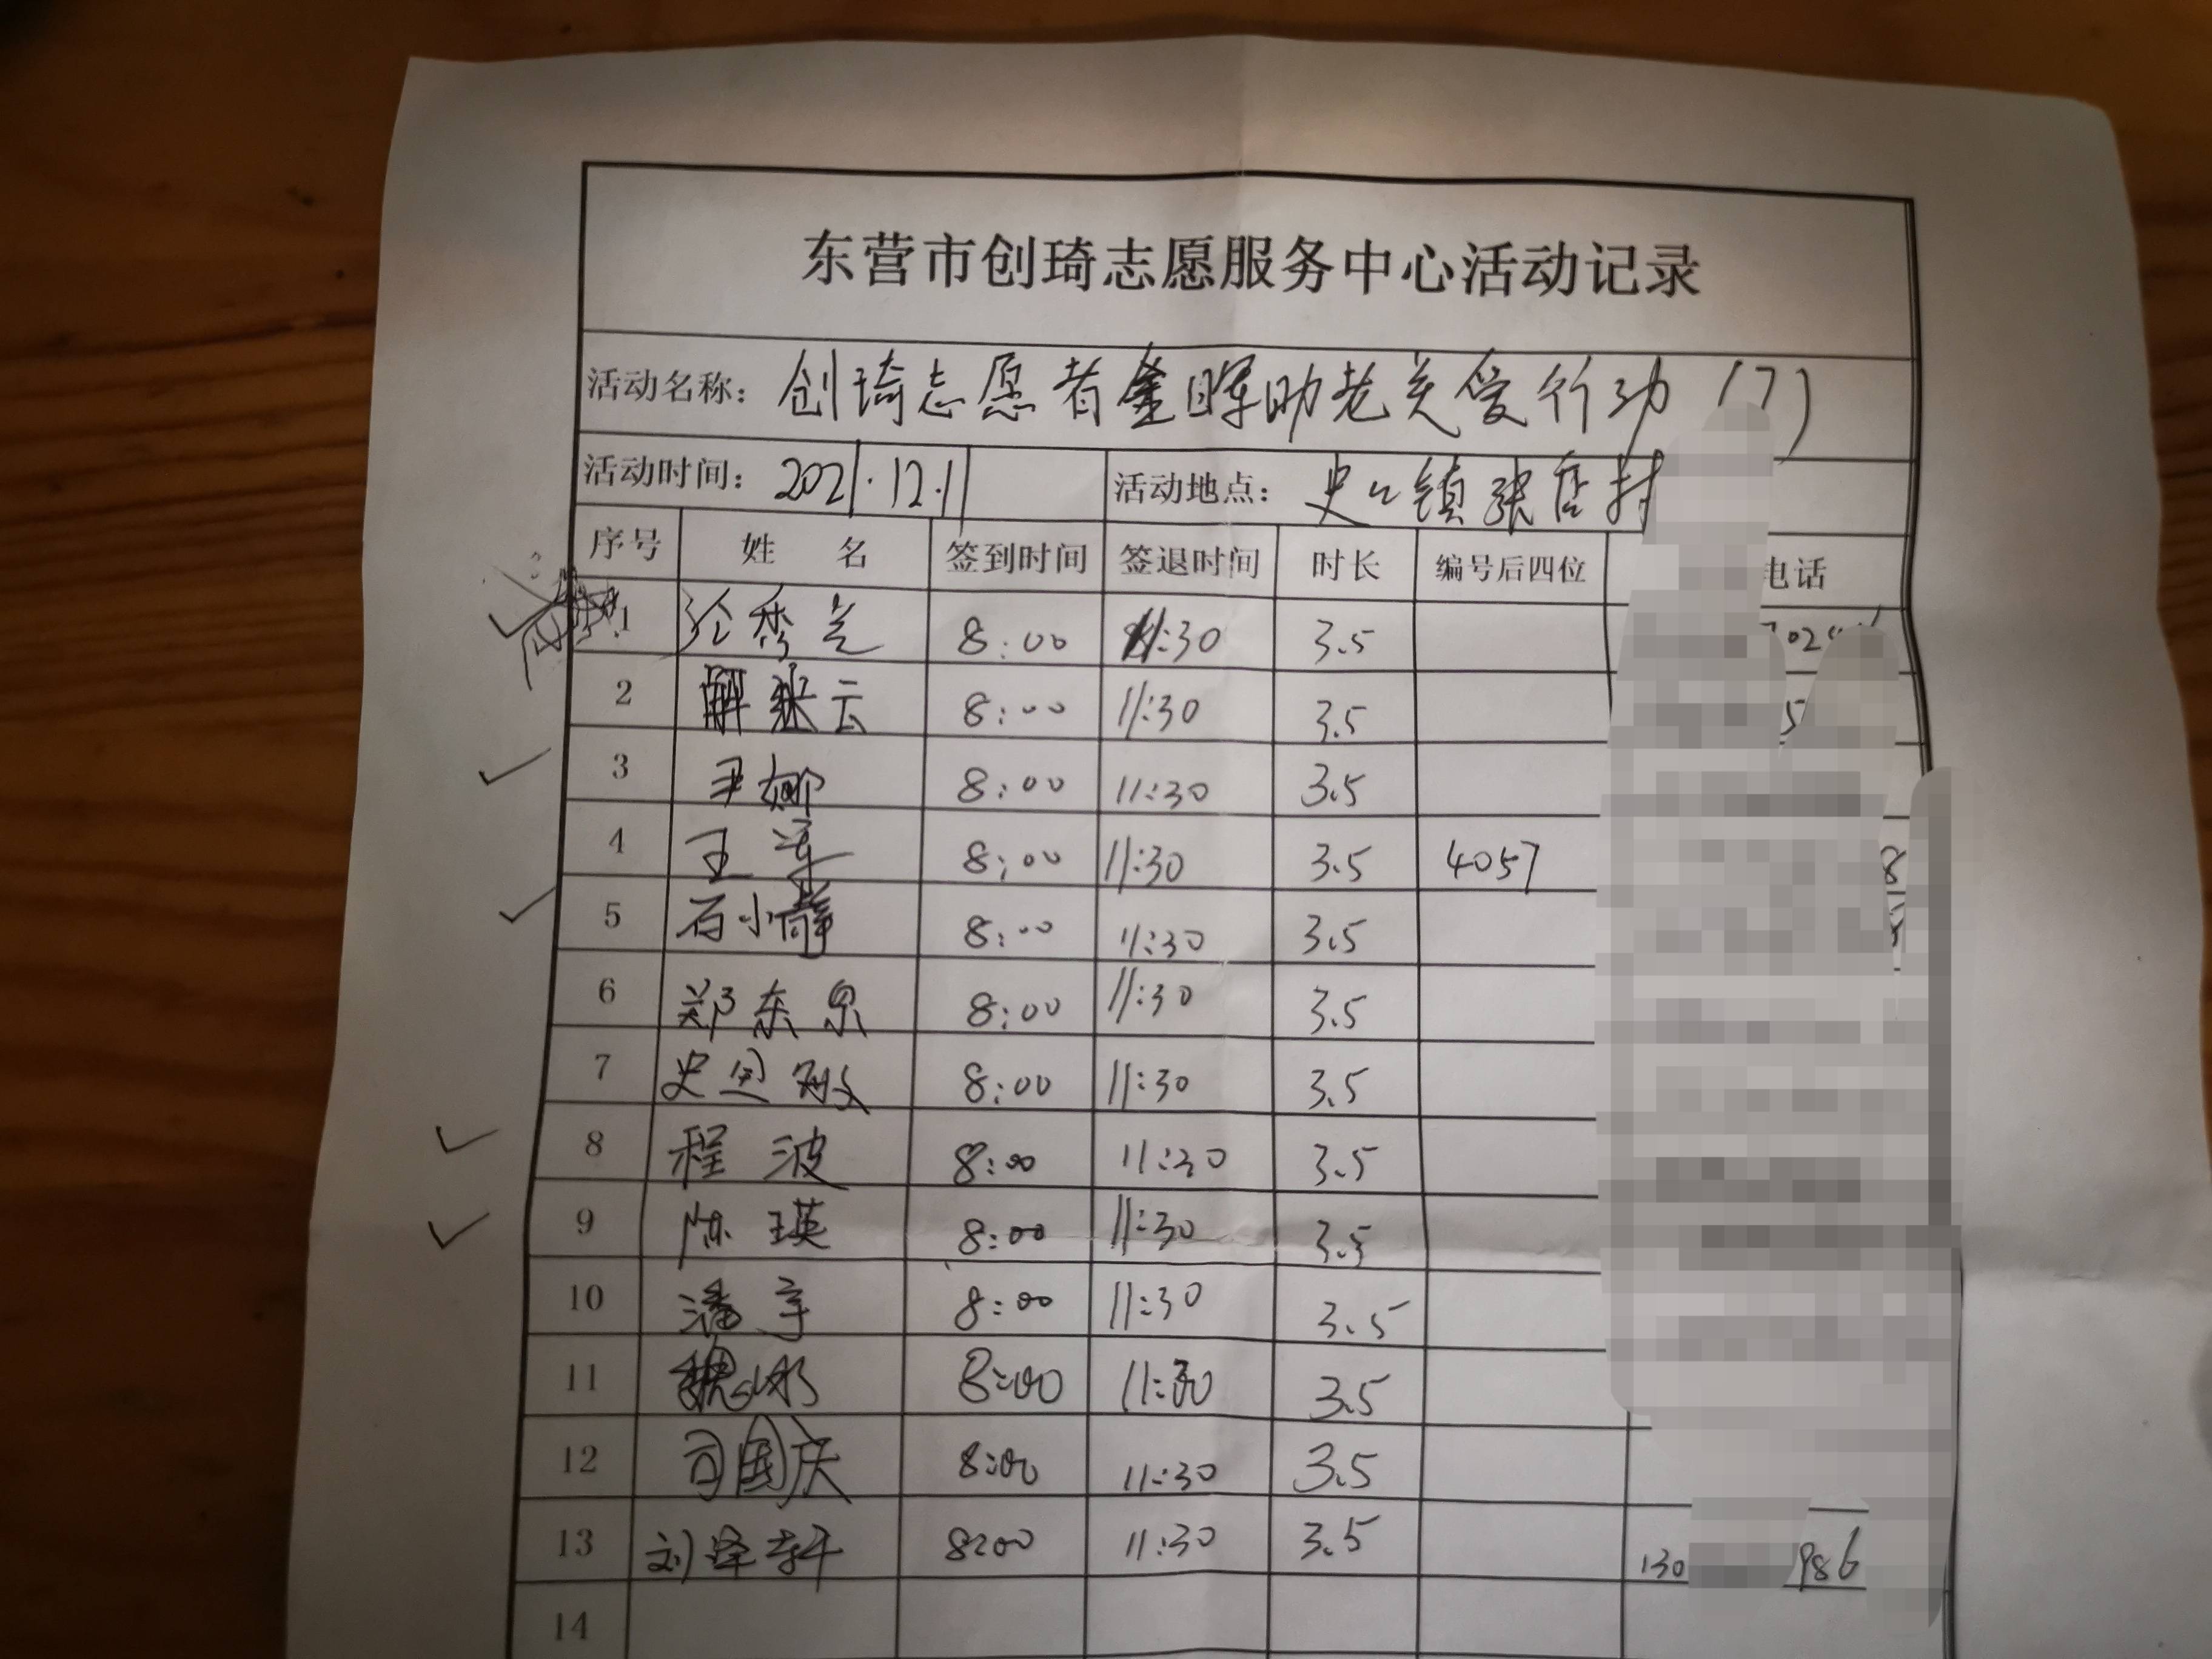 东营市创琦志愿服务中心活动记录
活动名称：创琦志愿者金晖助老关爱行动（7）
活动时间：2021.12.11 活动地点：史口镇张店村
序号 姓 名 签到时间 签退时间 时长 编号后四位 电话
1 秀兰 8:00 11:30 3.5
2 解 云 8:00 11:30 3.5
3 尹娜 8:00 11:30 3.5
4 王萍 8:00 11:30 3.5 4057
5 石小静 8:00 11:30 3.5
6 郑东泉 8:00 11:30 3.5
7 史国敏 8:00 11:30 3.5
8 程波 8:00 11:30 3.5
9 陈瑛 8:00 11:30 3.5
10 潘 8:00 11:30 3.5
11 魏 8:00 11:30 3.5
12 司国庆 8:00 11:30 3.5
13 刘泽轩 8:00 11:30 3.5 130 986
14